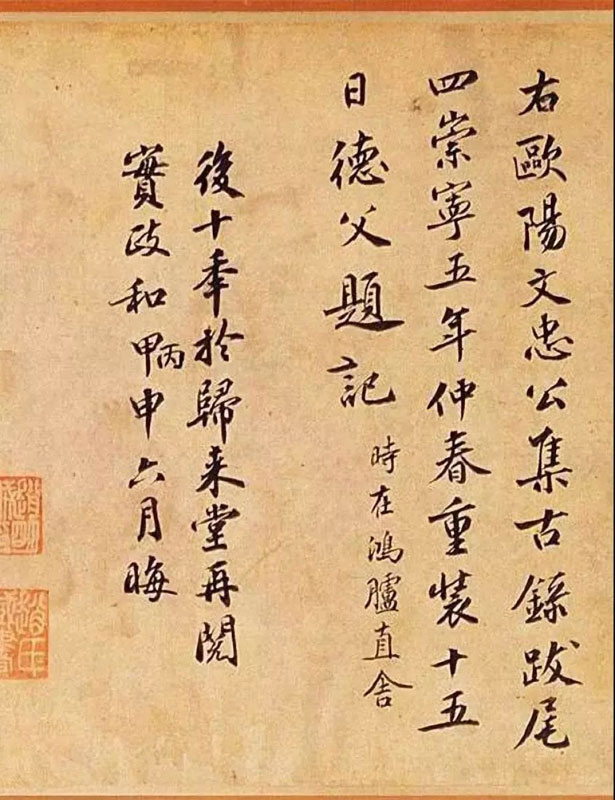 右歐陽文忠公集古錄跋尾
四崇寧五年仲春重裝十五
日德父題記 時在鴻臚直舍
後十年於歸来堂再閱
實政和甲丙申六月晦